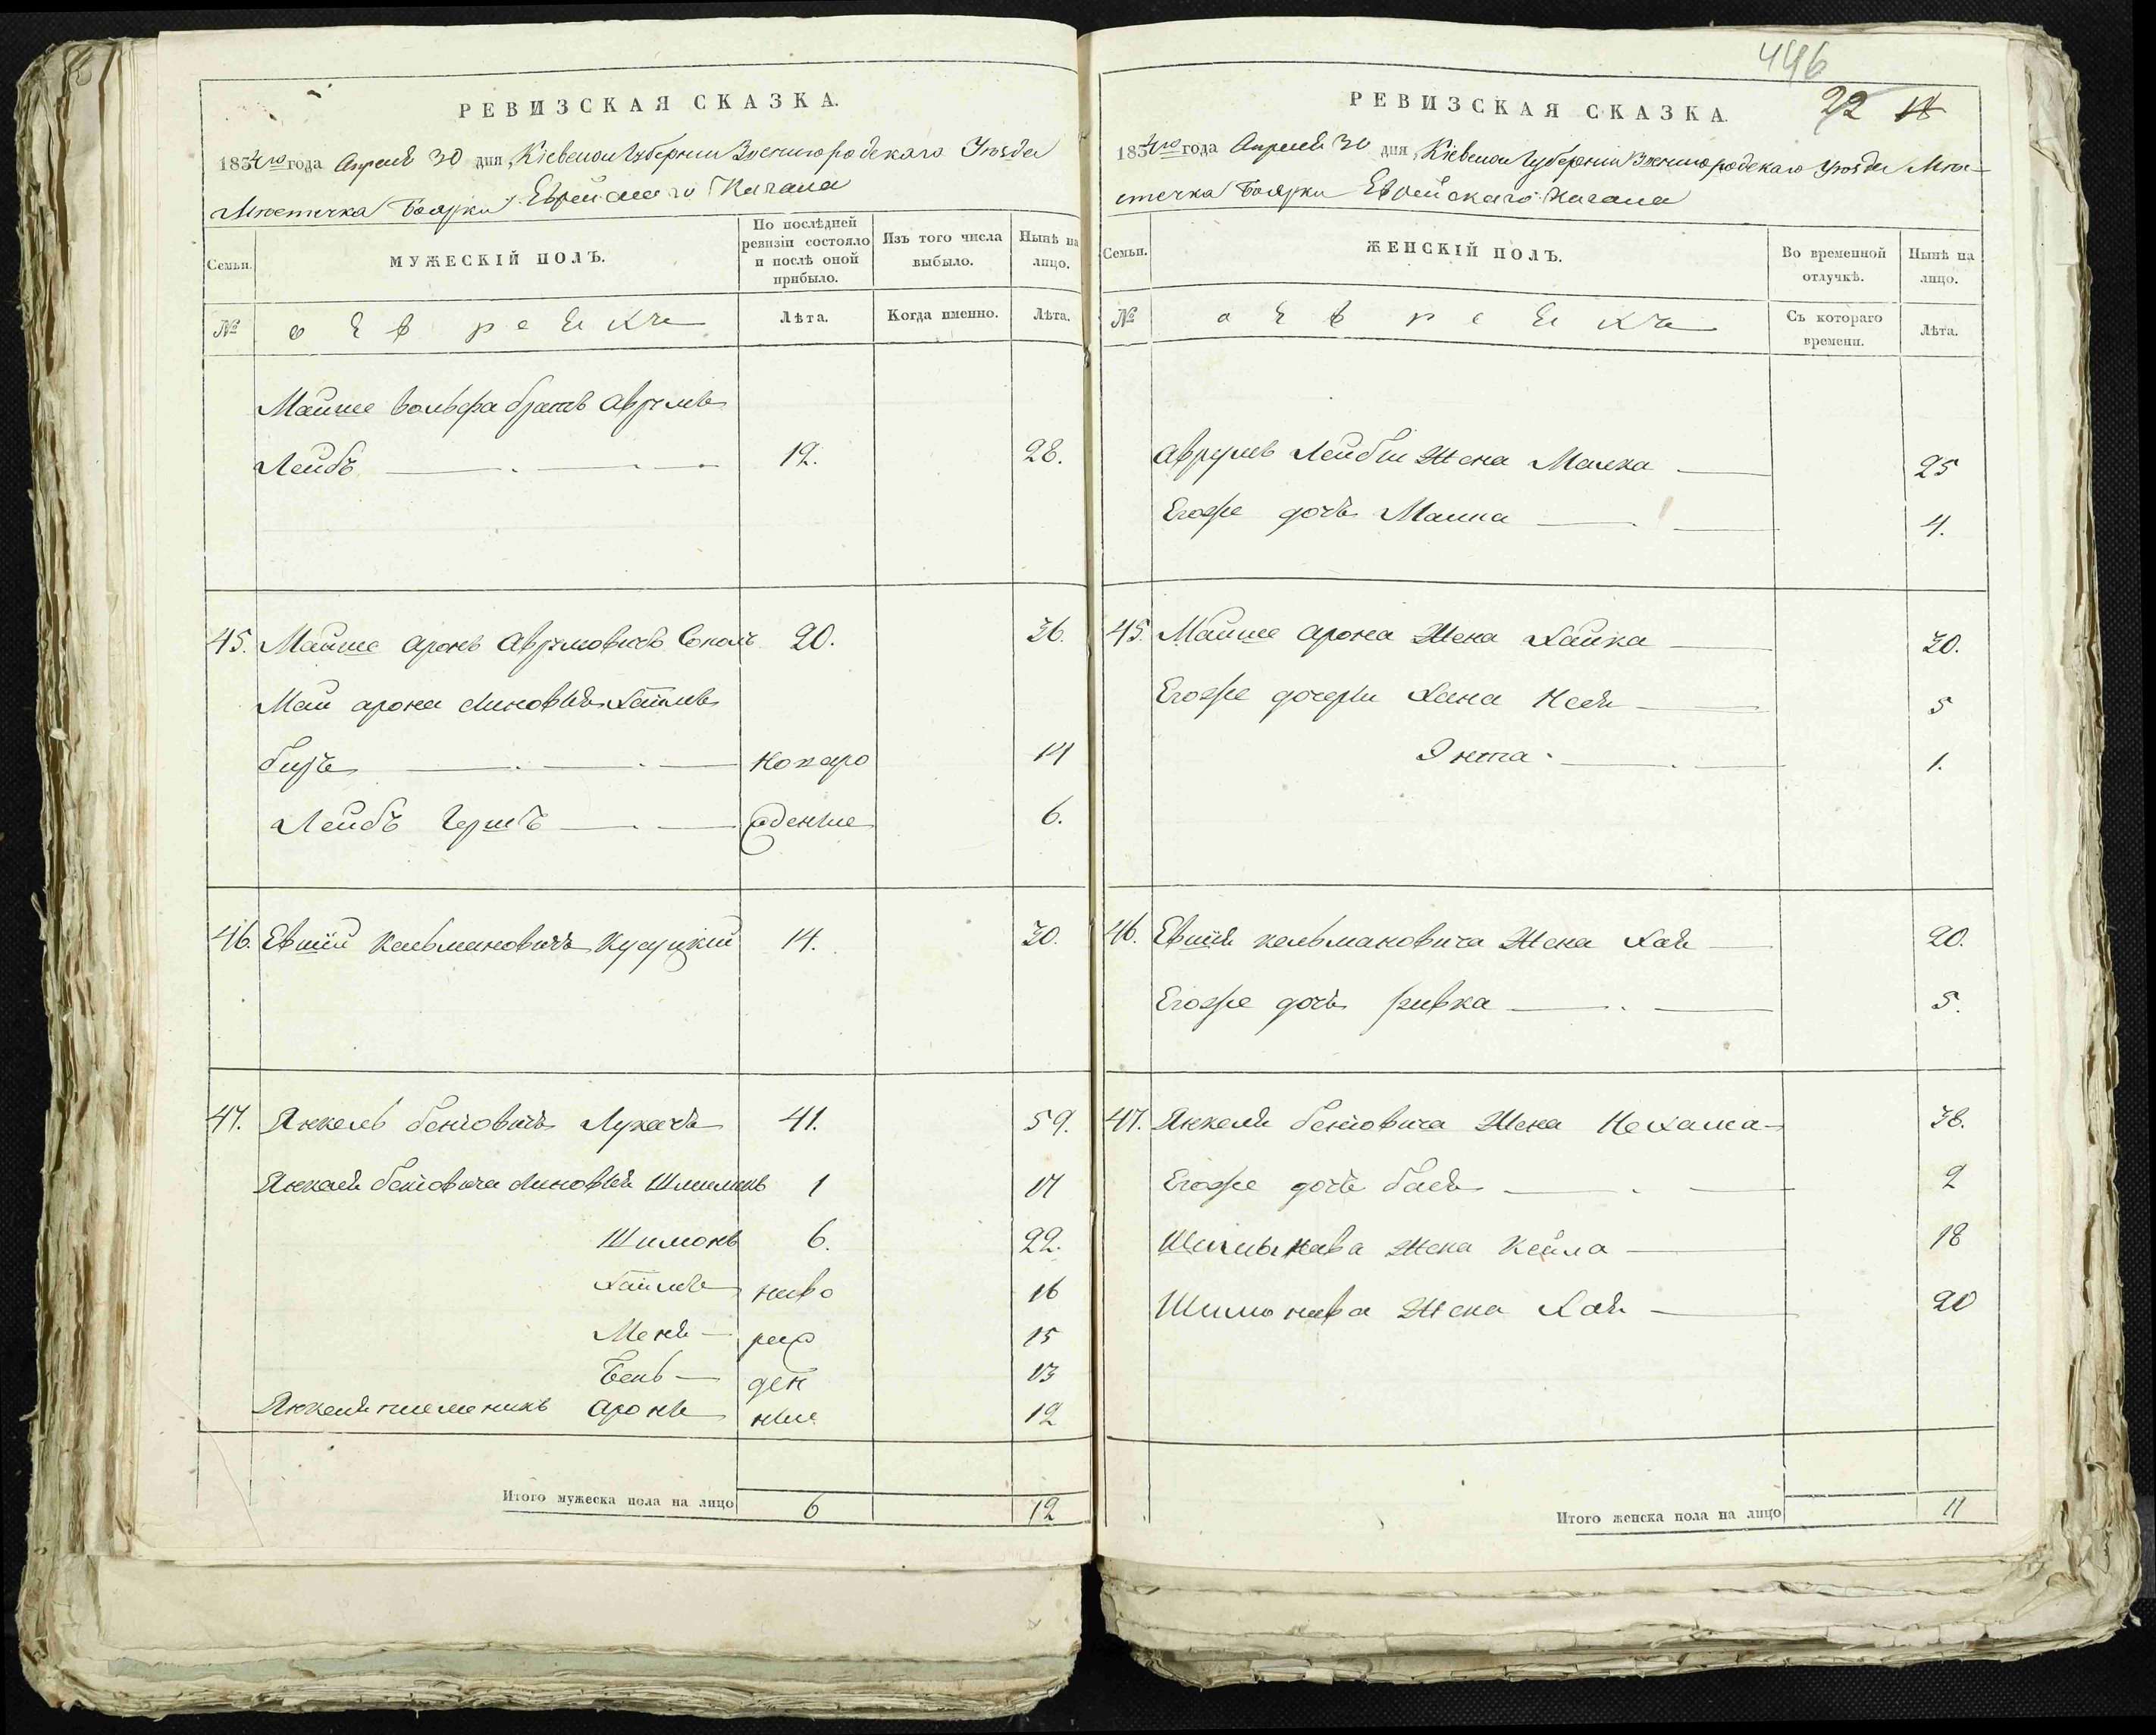 РЕВИЗСКАЯ СКАЗКА.
1834го года Апреля 30 дня, Кіевской Губерніи Звенигородскаго Уѣзда
Мѣстечка Боярки Еврейскаго Кагала
Семьи.
МУЖЕСКІЙ ПОЛЪ.
По послѣдней ревизіи состояло и послѣ оной прибыло.
Изъ того числа выбыло.
Нынѣ на лицо.
№
о Е в р е я хъ
Лѣта.
Когда именно.
Лѣта.
Майше Вольфа братъ Аврумъ
Лейбъ 12. 28.
45. Майше Аронъ Аврумовичъ Соколъ 20. 36.
Май арона сыновья Хаимъ
Беръ новоро 14
Лейбъ Гершъ жденые 6.
46. Евшій Кальмановичъ 14. 30.
47. Янкель Бенювичъ Лухачъ 41. 59.
Янкеля Бенювича сыновья 1 17
Шимонъ 6. 22.
Хаимъ ново 16
Меня рож 15
Бень ден 13
Янкеля племеникъ Аронъ ные 12
Итого мужеска пола на лицо 6 12
446
22 14
РЕВИЗСКАЯ СКАЗКА.
1834го года Апреля 30 дня, Кіевской Губерніи Звенигородскаго Уѣзда Мѣ-
стечка Боярки Еврейскаго Кагала
Семьи.
ЖЕНСКІЙ ПОЛЪ.
Во временной отлучкѣ.
Нынѣ на лицо.
№
о Е в р е я хъ
Съ котораго времени.
Лѣта.
Аврумъ Лейби Жена Малка 25
Егоже дочь Маика 4.
45. Майше Арона Жена Хайка 30.
Егоже дочери Хана Нея 5
Энта 1.
46. Евшія Кальмановича Жена Хая 20.
Егоже дочь Ривка 5.
47. Янкеля Бенювича Жена Нехама 38.
Егоже дочь Бася 2
Жена Кейла 18
Шимонава Жена Хая 20
Итого женска пола на лицо 11